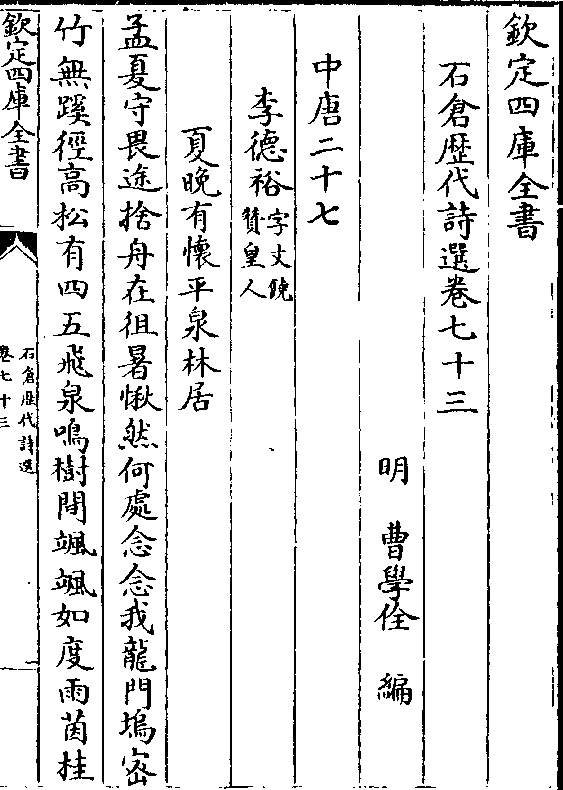 欽定四庫全書
石倉歴代詩選卷七十三
明 曹學佺 編
中唐二十七
李德裕字文饒贊皇人
夏晚有懷平泉林居
孟夏守畏途捨舟在徂暑愀然何處念念我龍門塢宻
竹無蹊徑高松有四五飛泉鳴樹間颯颯如度雨茵桂
欽定四庫全書
石倉歴代詩選
卷七十三